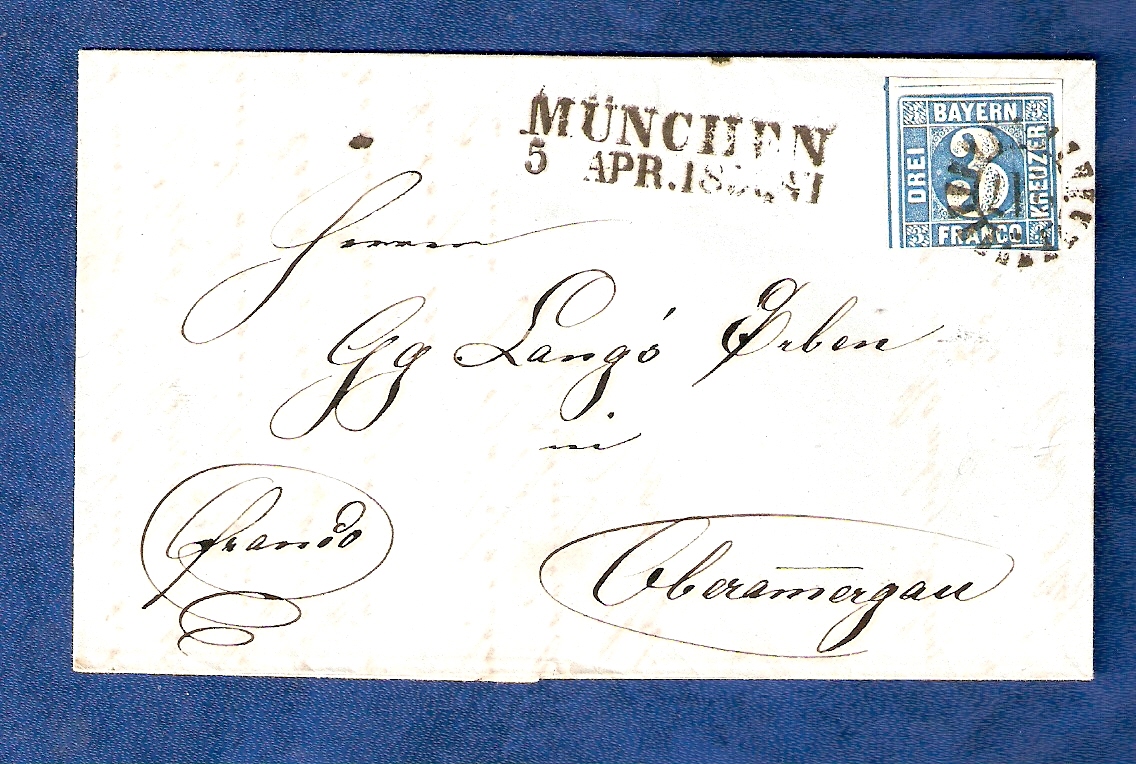 MÜNCHEN
5 APR. 18
BAYERN
DREI
3
KREUZER
FRANCO
Herren
Gg Lang's Erben
in
franco
Oberam̅ergau